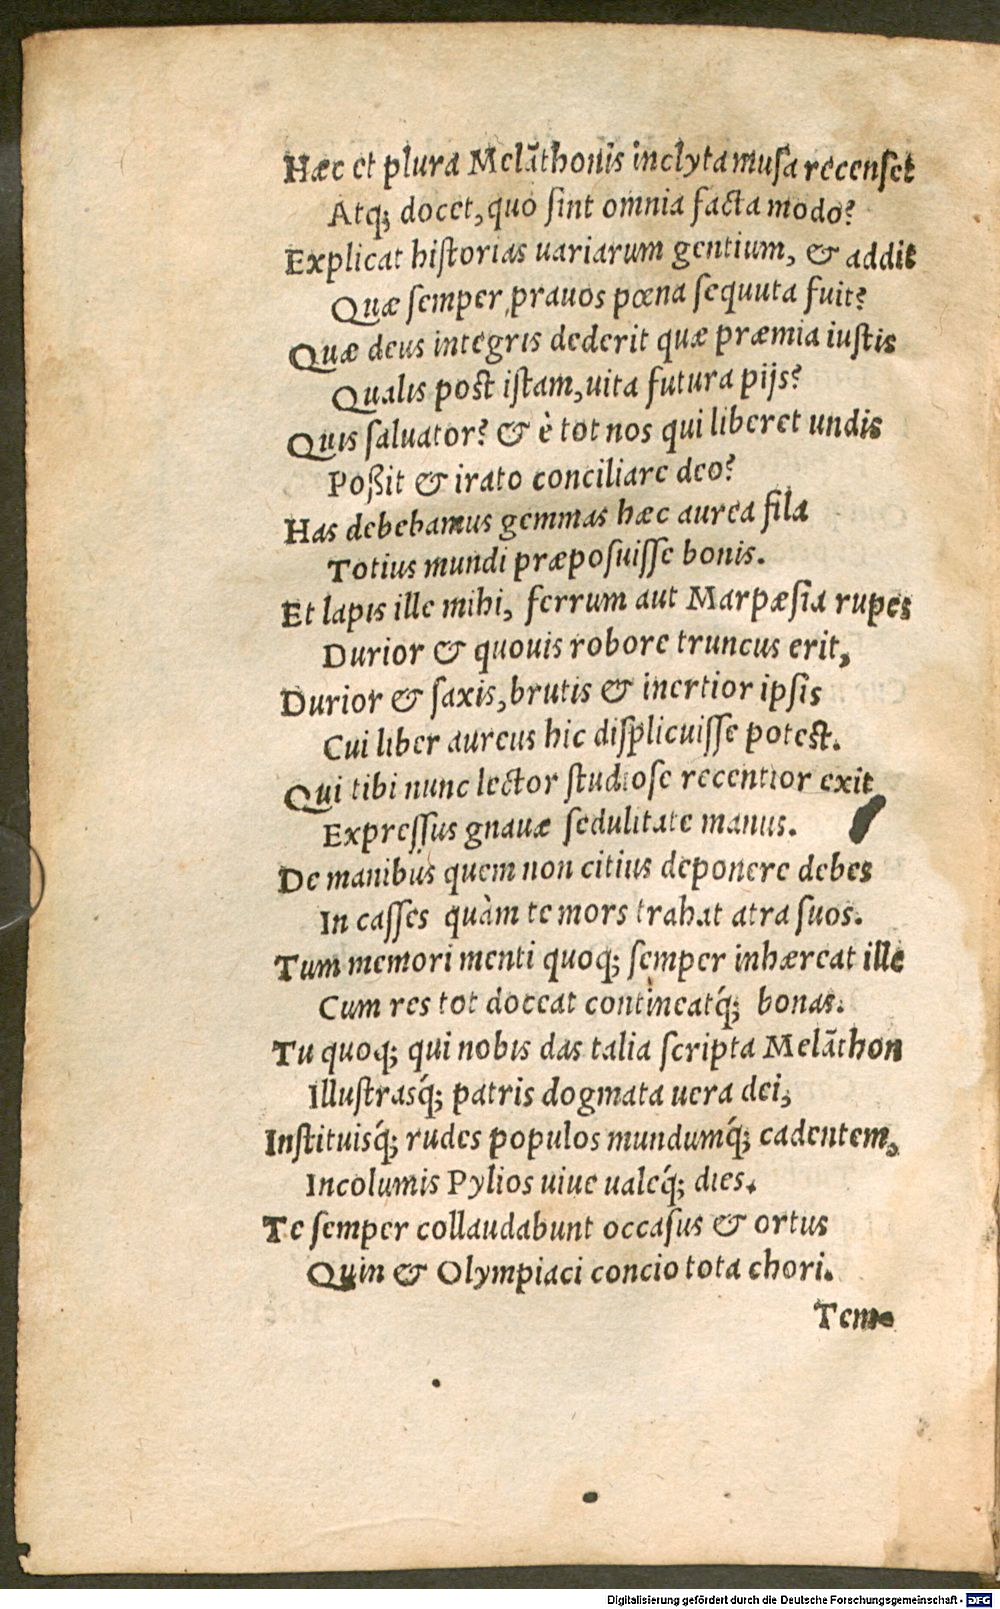 Hæc et plura Melāthonis inclyta musa recenset
Atq; docet, quo sint omnia facta modo?
Explicat historias uariarum gentium, & addit
Quæ semper prauos pœna sequuta fuit?
Quæ deus integris dederit quæ præmia iustis
Qualis post istam, uita futura pijs?
Quis saluator? & è tot nos qui liberet undis
Poßit & irato conciliare deo?
Has debebamus gemmas hæc aurea fila
Totius mundi præposuisse bonis.
Et lapis ille mihi, ferrum aut Marpæsia rupes
Durior & quouis robore truncus erit,
Durior & saxis, brutis & inertior ipsis
Cui liber aureus hic displicuisse potest.
Qui tibi nunc lector studiose recentior exit
Expressus gnauæ sedulitate manus.
De manibus quem non citius deponere debes
In casses quàm te mors trahat atra suos.
Tum memori menti quoq; semper inhæreat ille
Cum res tot doceat contineatq́; bonas.
Tu quoq; qui nobis das talia scripta Melāthon
Illustrasq́; patris dogmata uera dei,
Instituisq́; rudes populos mundumq́; cadentem,
Incolumis Pylios uiue ualeq́; dies.
Te semper collaudabunt occasus & ortus
Quin & Olympiaci concio tota chori.
Tem-
Digitalisierung gefördert durch die Deutsche Forschungsgemeinschaft - DFG